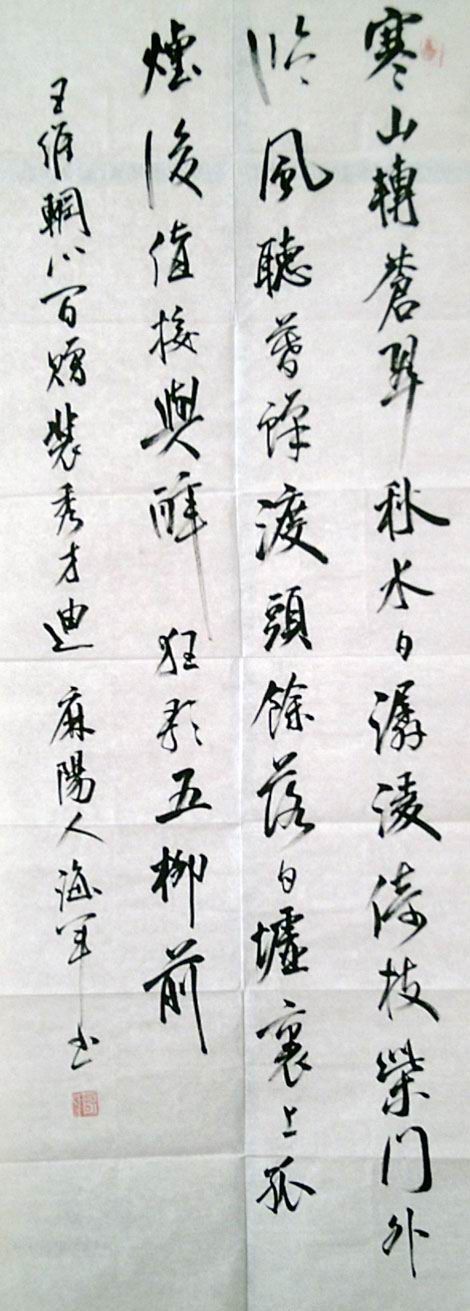 寒山轉蒼翠秋水日潺湲倚杖柴門外
臨風聽暮蟬渡頭餘落日墟裏上孤
煙復值接輿醉狂歌五柳前
王維輞川贈裴秀才迪麻陽人海軍书